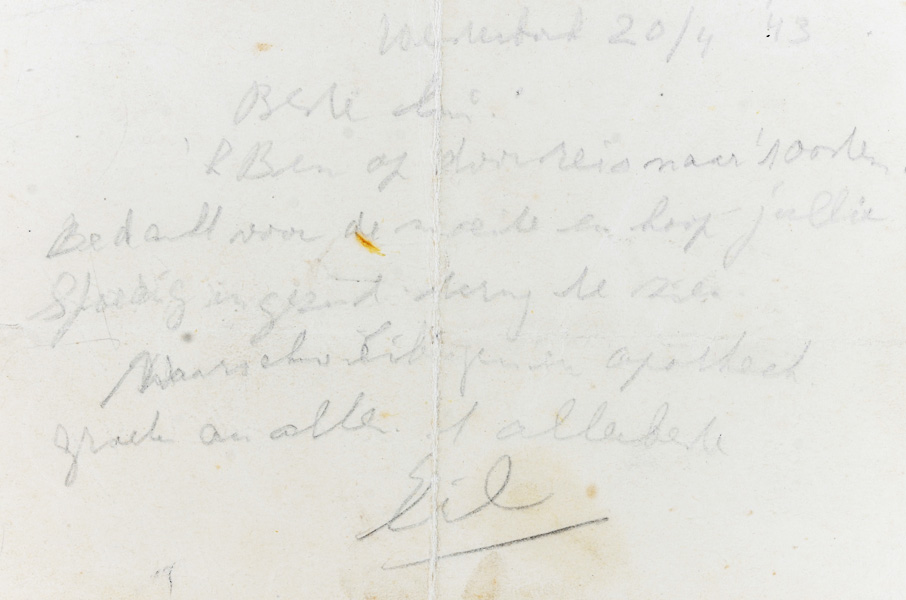 Westerbork 20/4 '43
Beste lui.
'k Ben op doorreis naar 't Oosten.
Bedankt voor de moeite en hoop jullie
Spoedig en gezond terug te zien
Waarschuw apotheek
groeten aan allen. 't allerbeste